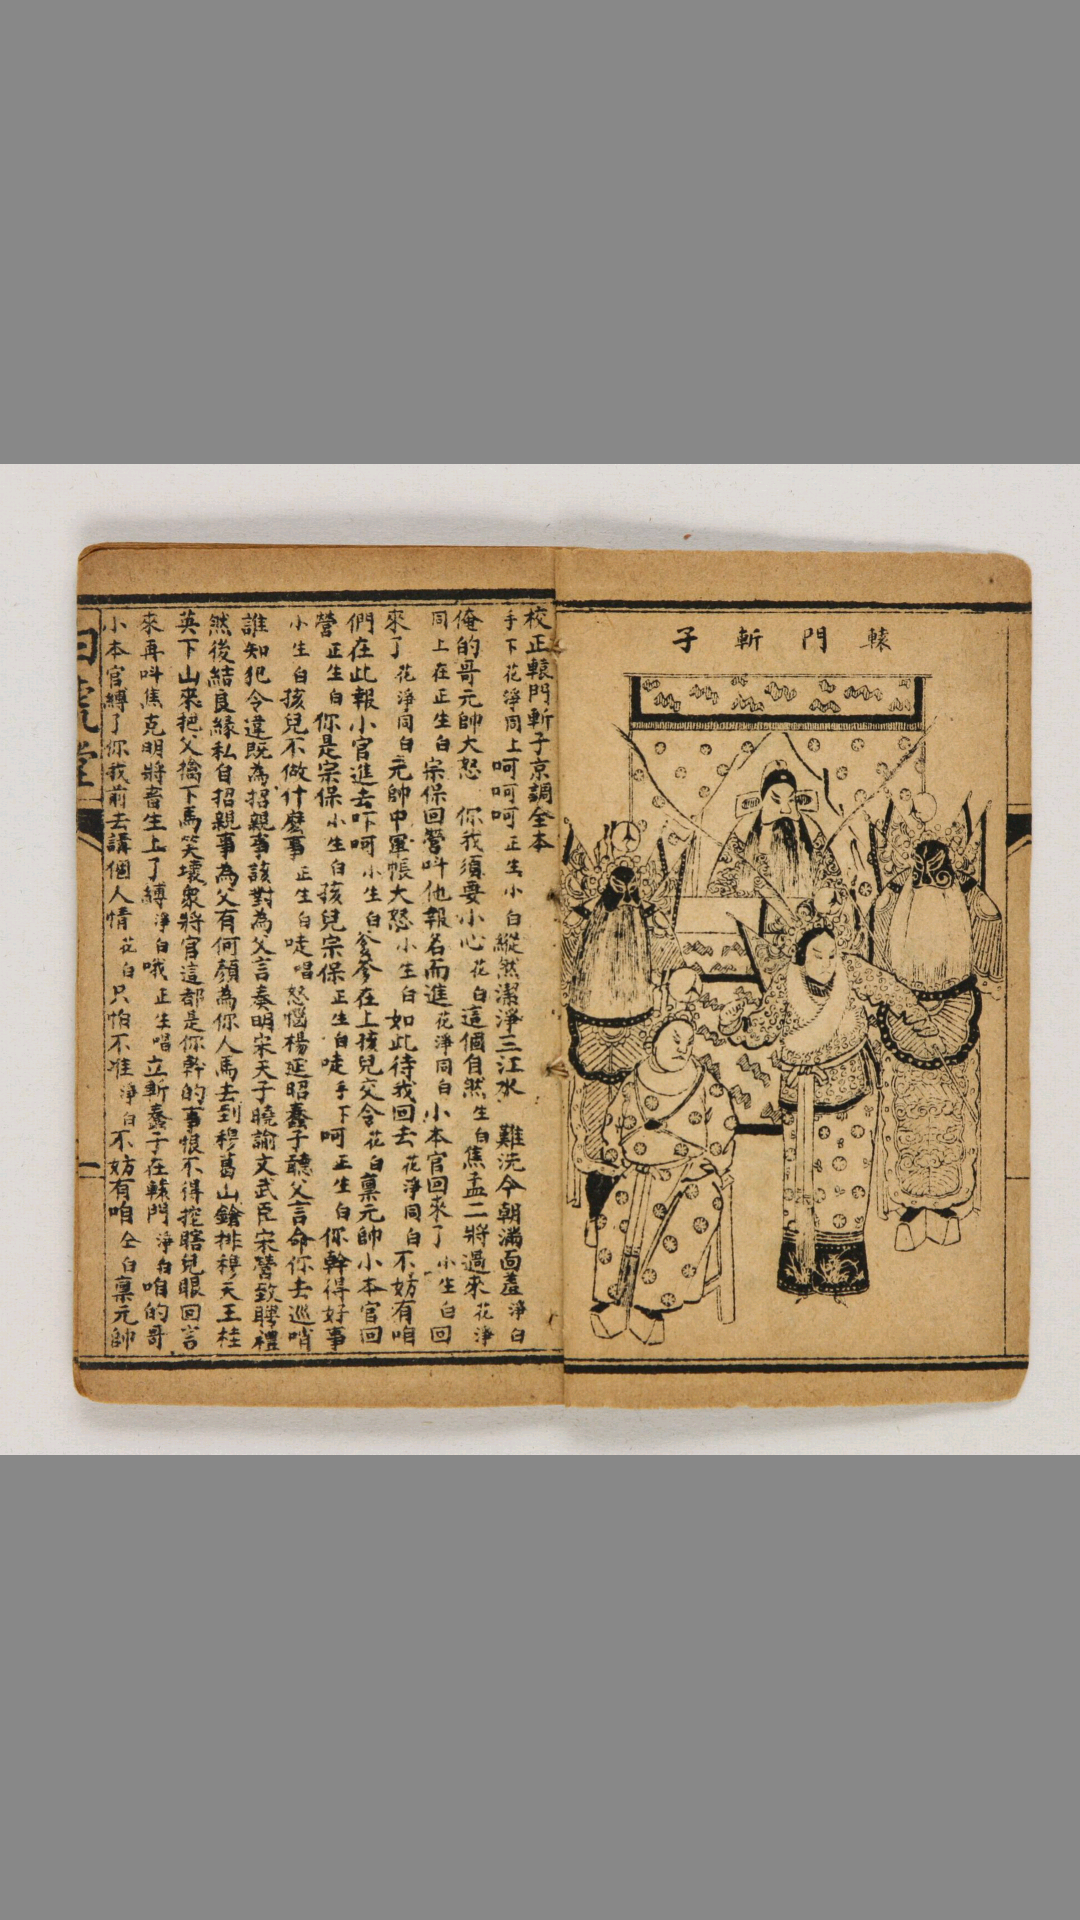 轅門斬子
校正轅門斬子京調全本
手下花淨同上呵呵呵正生小白縱然潔淨三江水 難洗今朝滿面羞淨白
俺的哥元帥大怒 你我須要小心花白這個自然生白焦孟二將過來花淨
同上在正生白宗保回營呌他報名而進花淨同白小本官回來了小生白回
來了花淨同白元帥中軍帳大怒小生白如此待我回去花淨同白不妨有咱
們在此報小官進去吓呵小生白爹爹在上孩兒交令花白禀元帥小本官回
營正生白你是宗保小生白孩兒宗保正生白唗手下呵正生白你幹得好事
小生白孩兒不做什麽事正生白唗唱怒惱楊延昭蠢子聽父言命你去巡哨
誰知犯令違既為招親事該對為父言奏明宋天子曉諭文武臣宋營致聘禮
然後結良緣私自招親事為父有何顏為你人馬去到穆葛山鎗排穆天王桂
英下山來把父擒下馬笑壞衆將官這都是你幹的事恨不得挖瞎兒眼回言
來再呌焦克明將畜生上了縛淨白哦正生唱立斬蠢子在轅門淨白咱的哥
小本官縛了你我前去講個人情花白只怕不准淨白不妨有咱仝白禀元帥